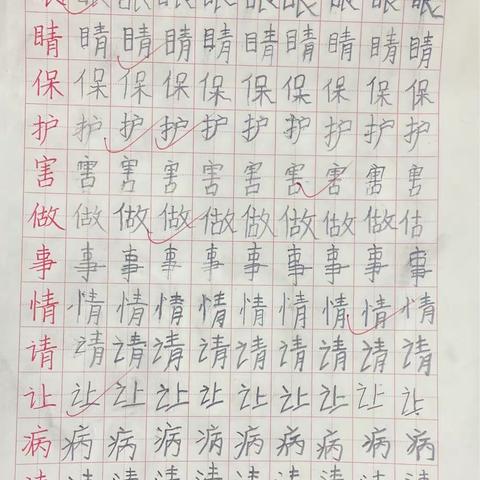 眼眼眼眼眼眼眼眼眼眼
睛睛睛睛睛睛睛睛睛睛
保保保保保保保保保保
护护护护护护护护护护
害害害害害害害害害害
做做做做做做做做做估
事事事事事事事事事事
情情情情情情情情情情
请请请请请请请请请请
让让让让让让让让让让
病病病病病病病病病病